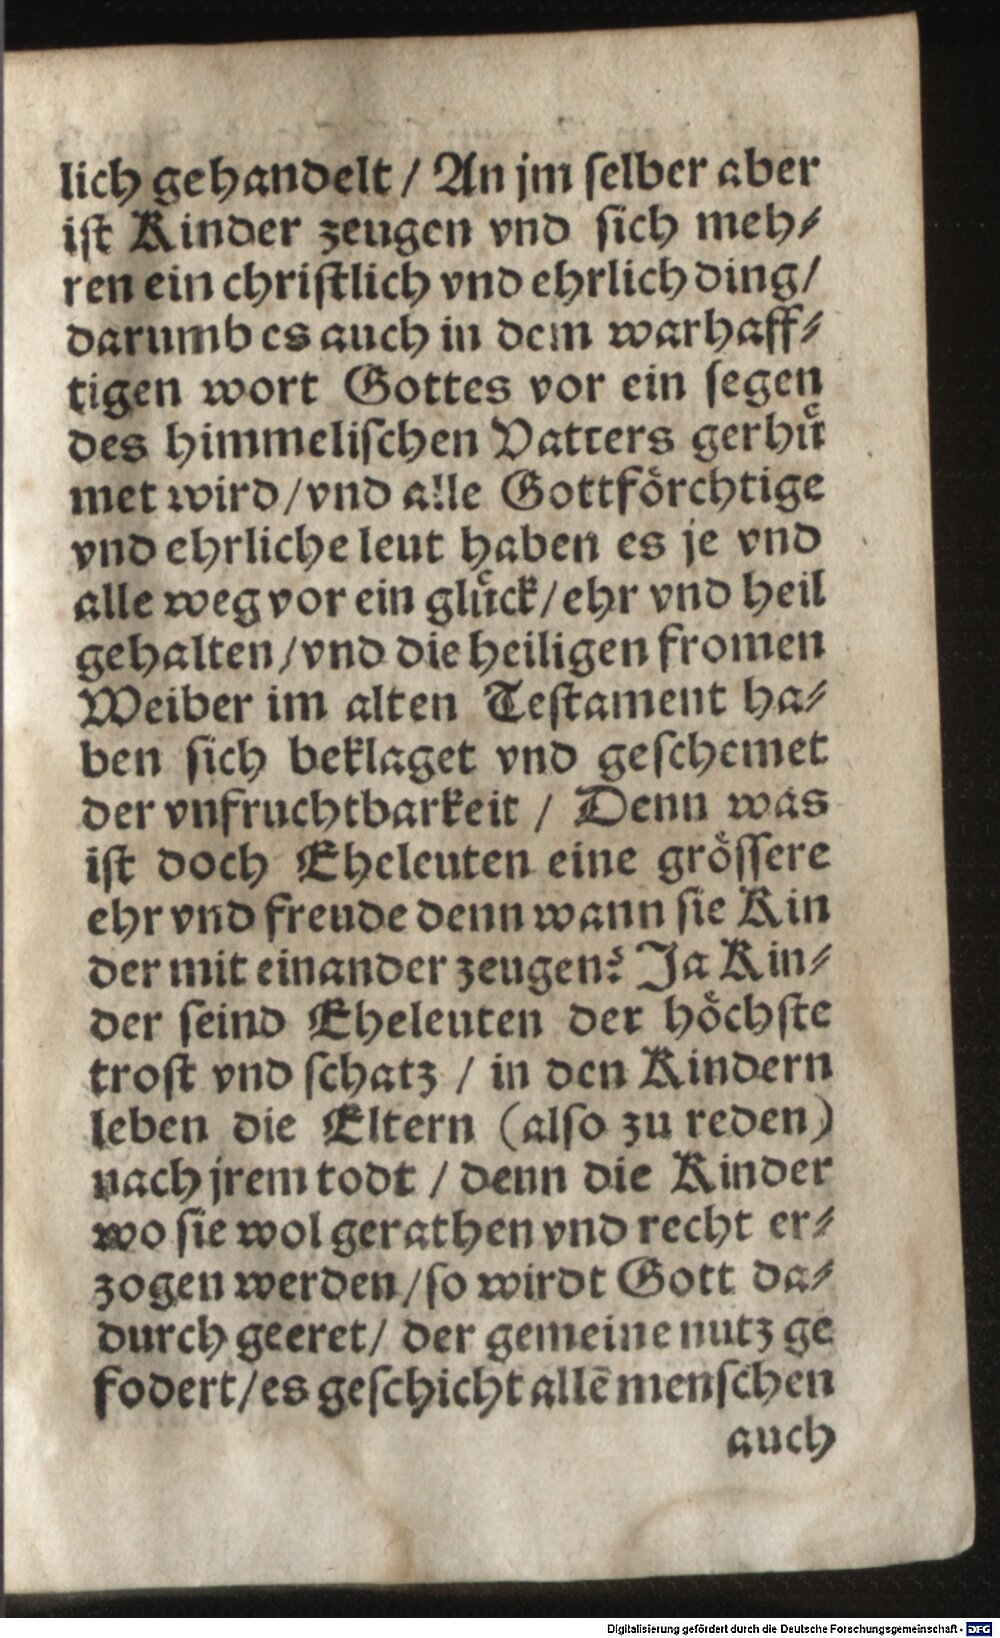 lich gehandelt / An jm ſelber aber
iſt Kinder zeugen vnd ſich meh⸗
ren ein chriſtlich vnd ehrlich ding/
darumb es auch in dem warhaff⸗
tigen wort Gottes vor ein ſegen
des himmeliſchen Vatters gerhuͤ
met wird/vnd alle Gottfoͤrchtige
vnd ehrliche leut haben es je vnd
alle weg vor ein gluͤck/ehr vnd heil
gehalten/vnd die heiligen fromen
Weiber im alten Teſtament ha⸗
ben ſich beklaget vnd geſchemet
der vnfruchtbarkeit / Denn was
iſt doch Eheleuten eine groͤſſere
ehr vnd freude denn wann ſie Kin
der mit einander zeugen? Ja Kin⸗
der ſeind Eheleuten der hoͤchſte
troſt vnd ſchatz / in den Kindern
leben die Eltern (alſo zu reden)
nach jrem todt / denn die Kinder
wo ſie wol gerathen vnd recht er⸗
zogen werden/ſo wirdt Gott da⸗
durch geeret/ der gemeine nutz ge
fodert/es geſchicht allē menſchen
auch
Digitalisierung gefördert durch die Deutsche Forschungsgemeinschaft - DFG